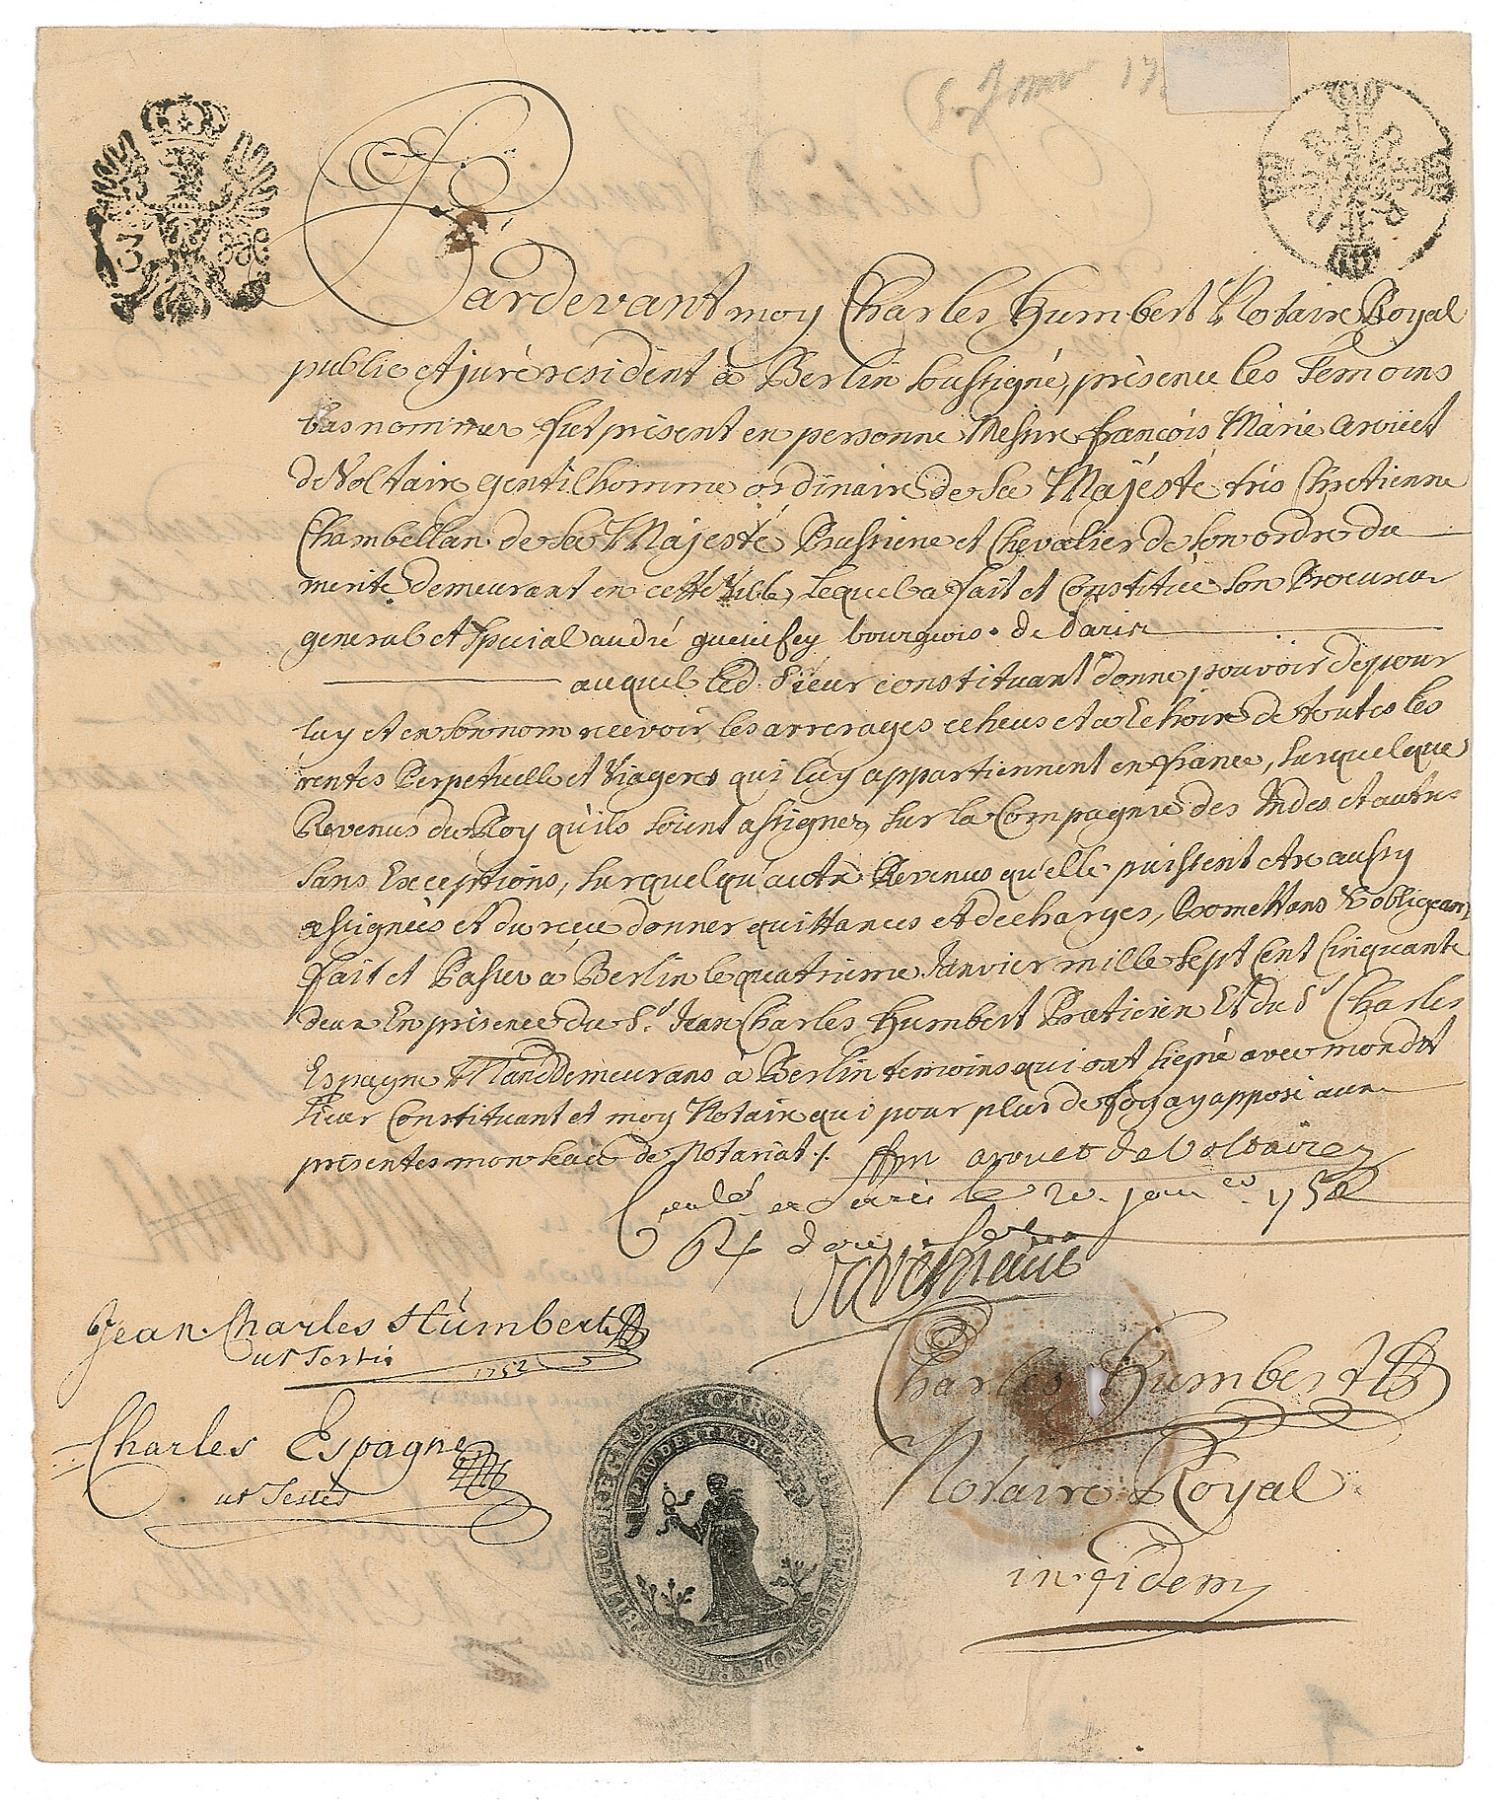 Pardevant moy Charles Humbert Notaire Royal
public et juré resident à Berlin soussigné, présence les Témoins
bas nommez fut présent en personne Messire françois Marie arouet
de Voltaire gentilhomme ordinaire de Sa Majesté très Chretienne
Chambellan de Sa Majesté Prussiene et Chevalier de son ordre du
merite demeurant en cette Ville, Lequel a fait et Constitué son Procureur
general et special andré bourgeois de Paris
auquel led. Sieur constituant donne pouvoir de pour
luy et en son nom recevoir les arrerages echeus et a Echoir de toutes les
rentes Perpetuelle et Viageres qui luy appartiennent en france, sur quelque
Revenus du Roy qu'ils soient assignez, sur la Compagnie des Indes et autre
sans Exceptions, sur quelqu'autre Revenus qu'elle puissent etre aussy
assignées et du reçu donner quittances et decharges, Promettans Obligeans
fait et Passé à Berlin le quatrieme Janvier mille sept Cent Cinquante
deux En présence du Sr. Jean Charles Humbert Praticien Et du Sr Charles
Espagne demeurans à Berlin temoins qui ont signé avec mondit
sieur Constituant et moy Notaire qui pour plus de foy ay apposé aux
présentes mon de Notariat ./. arouet de Voltaire
a Paris le 20 janer 1752
Jean Charles Humbert
ut Testis 1752
Charles Humbert
Charles Espagne
ut Testis
Notaire Royal
in fidem
PRUDENTIA
3